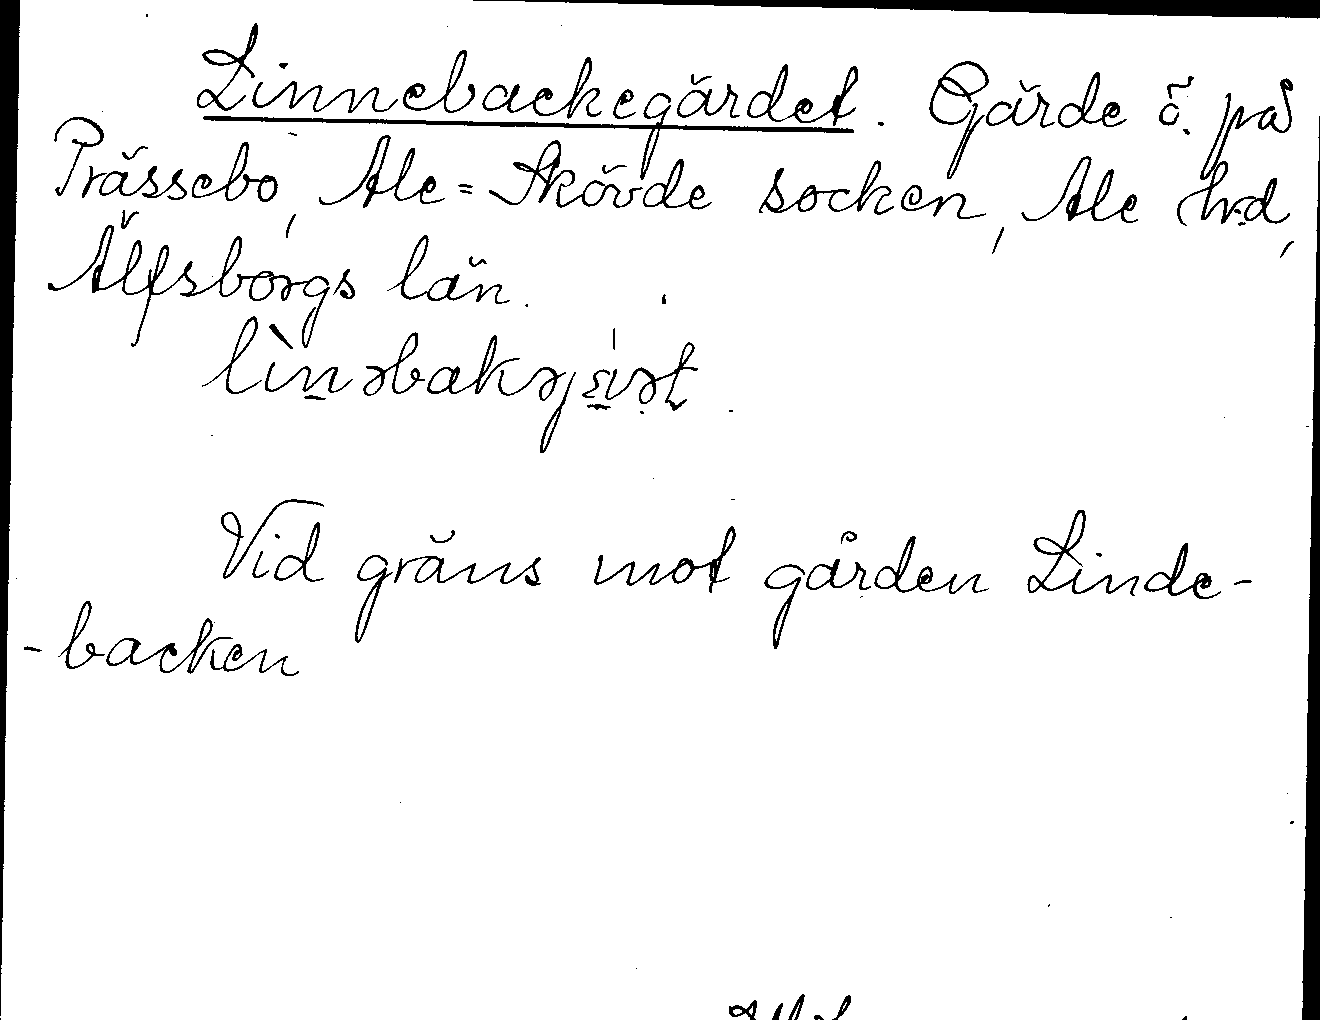 Linnebackegärdet. Gärde ö. på
Prässebo, Ale=Skövde socken, Ale hrd,
Älfsborgs län.
Vid gräns mot gården Linde-
-backen